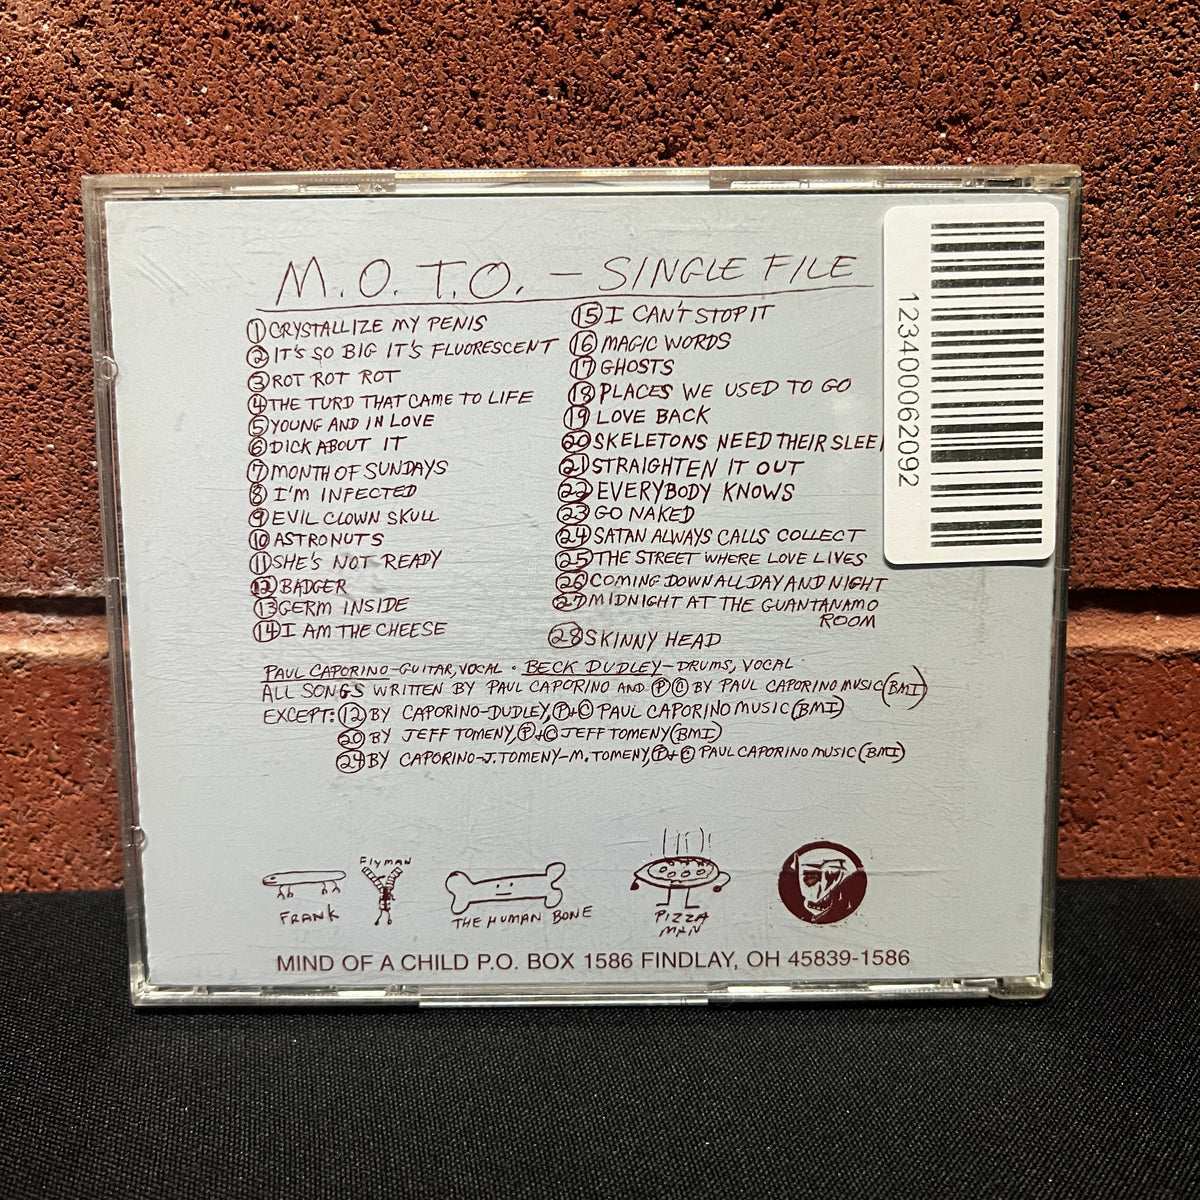 M.O.T.O. – SINGLE FILE
① CRYSTALLIZE MY PENIS
② IT'S SO BIG IT'S FLUORESCENT
③ ROT ROT ROT
④ THE TURD THAT CAME TO LIFE
⑤ YOUNG AND IN LOVE
⑥ DICK ABOUT IT
⑦ MONTH OF SUNDAYS
⑧ I'M INFECTED
⑨ EVIL CLOWN SKULL
⑩ ASTRONUTS
⑪ SHE'S NOT READY
⑫ BADGER
⑬ GERM INSIDE
⑭ I AM THE CHEESE
⑮ I CAN'T STOP IT
⑯ MAGIC WORDS
⑰ GHOSTS
⑱ PLACES WE USED TO GO
⑲ LOVE BACK
⑳ SKELETONS NEED THEIR SLEE
㉑ STRAIGHTEN IT OUT
㉒ EVERYBODY KNOWS
㉓ GO NAKED
㉔ SATAN ALWAYS CALLS COLLECT
㉕ THE STREET WHERE LOVE LIVES
㉖ COMING DOWN ALL DAY AND NIGHT
㉗ MIDNIGHT AT THE GUANTANAMO
ROOM
㉘ SKINNY HEAD
PAUL CAPORINO–GUITAR, VOCAL · BECK DUDLEY–DRUMS, VOCAL
ALL SONGS WRITTEN BY PAUL CAPORINO AND ℗© BY PAUL CAPORINO MUSIC (BMI)
EXCEPT: ⑫ BY CAPORINO-DUDLEY, ℗+© PAUL CAPORINO MUSIC (BMI)
⑳ BY JEFF TOMENY, ℗+© JEFF TOMENY (BMI)
㉔ BY CAPORINO-J. TOMENY-M. TOMENY, ℗+© PAUL CAPORINO MUSIC (BMI)
FRANK
FLYMAN
THE HUMAN BONE
PIZZA
MAN
MIND OF A CHILD P.O. BOX 1586 FINDLAY, OH 45839-1586
123400062092